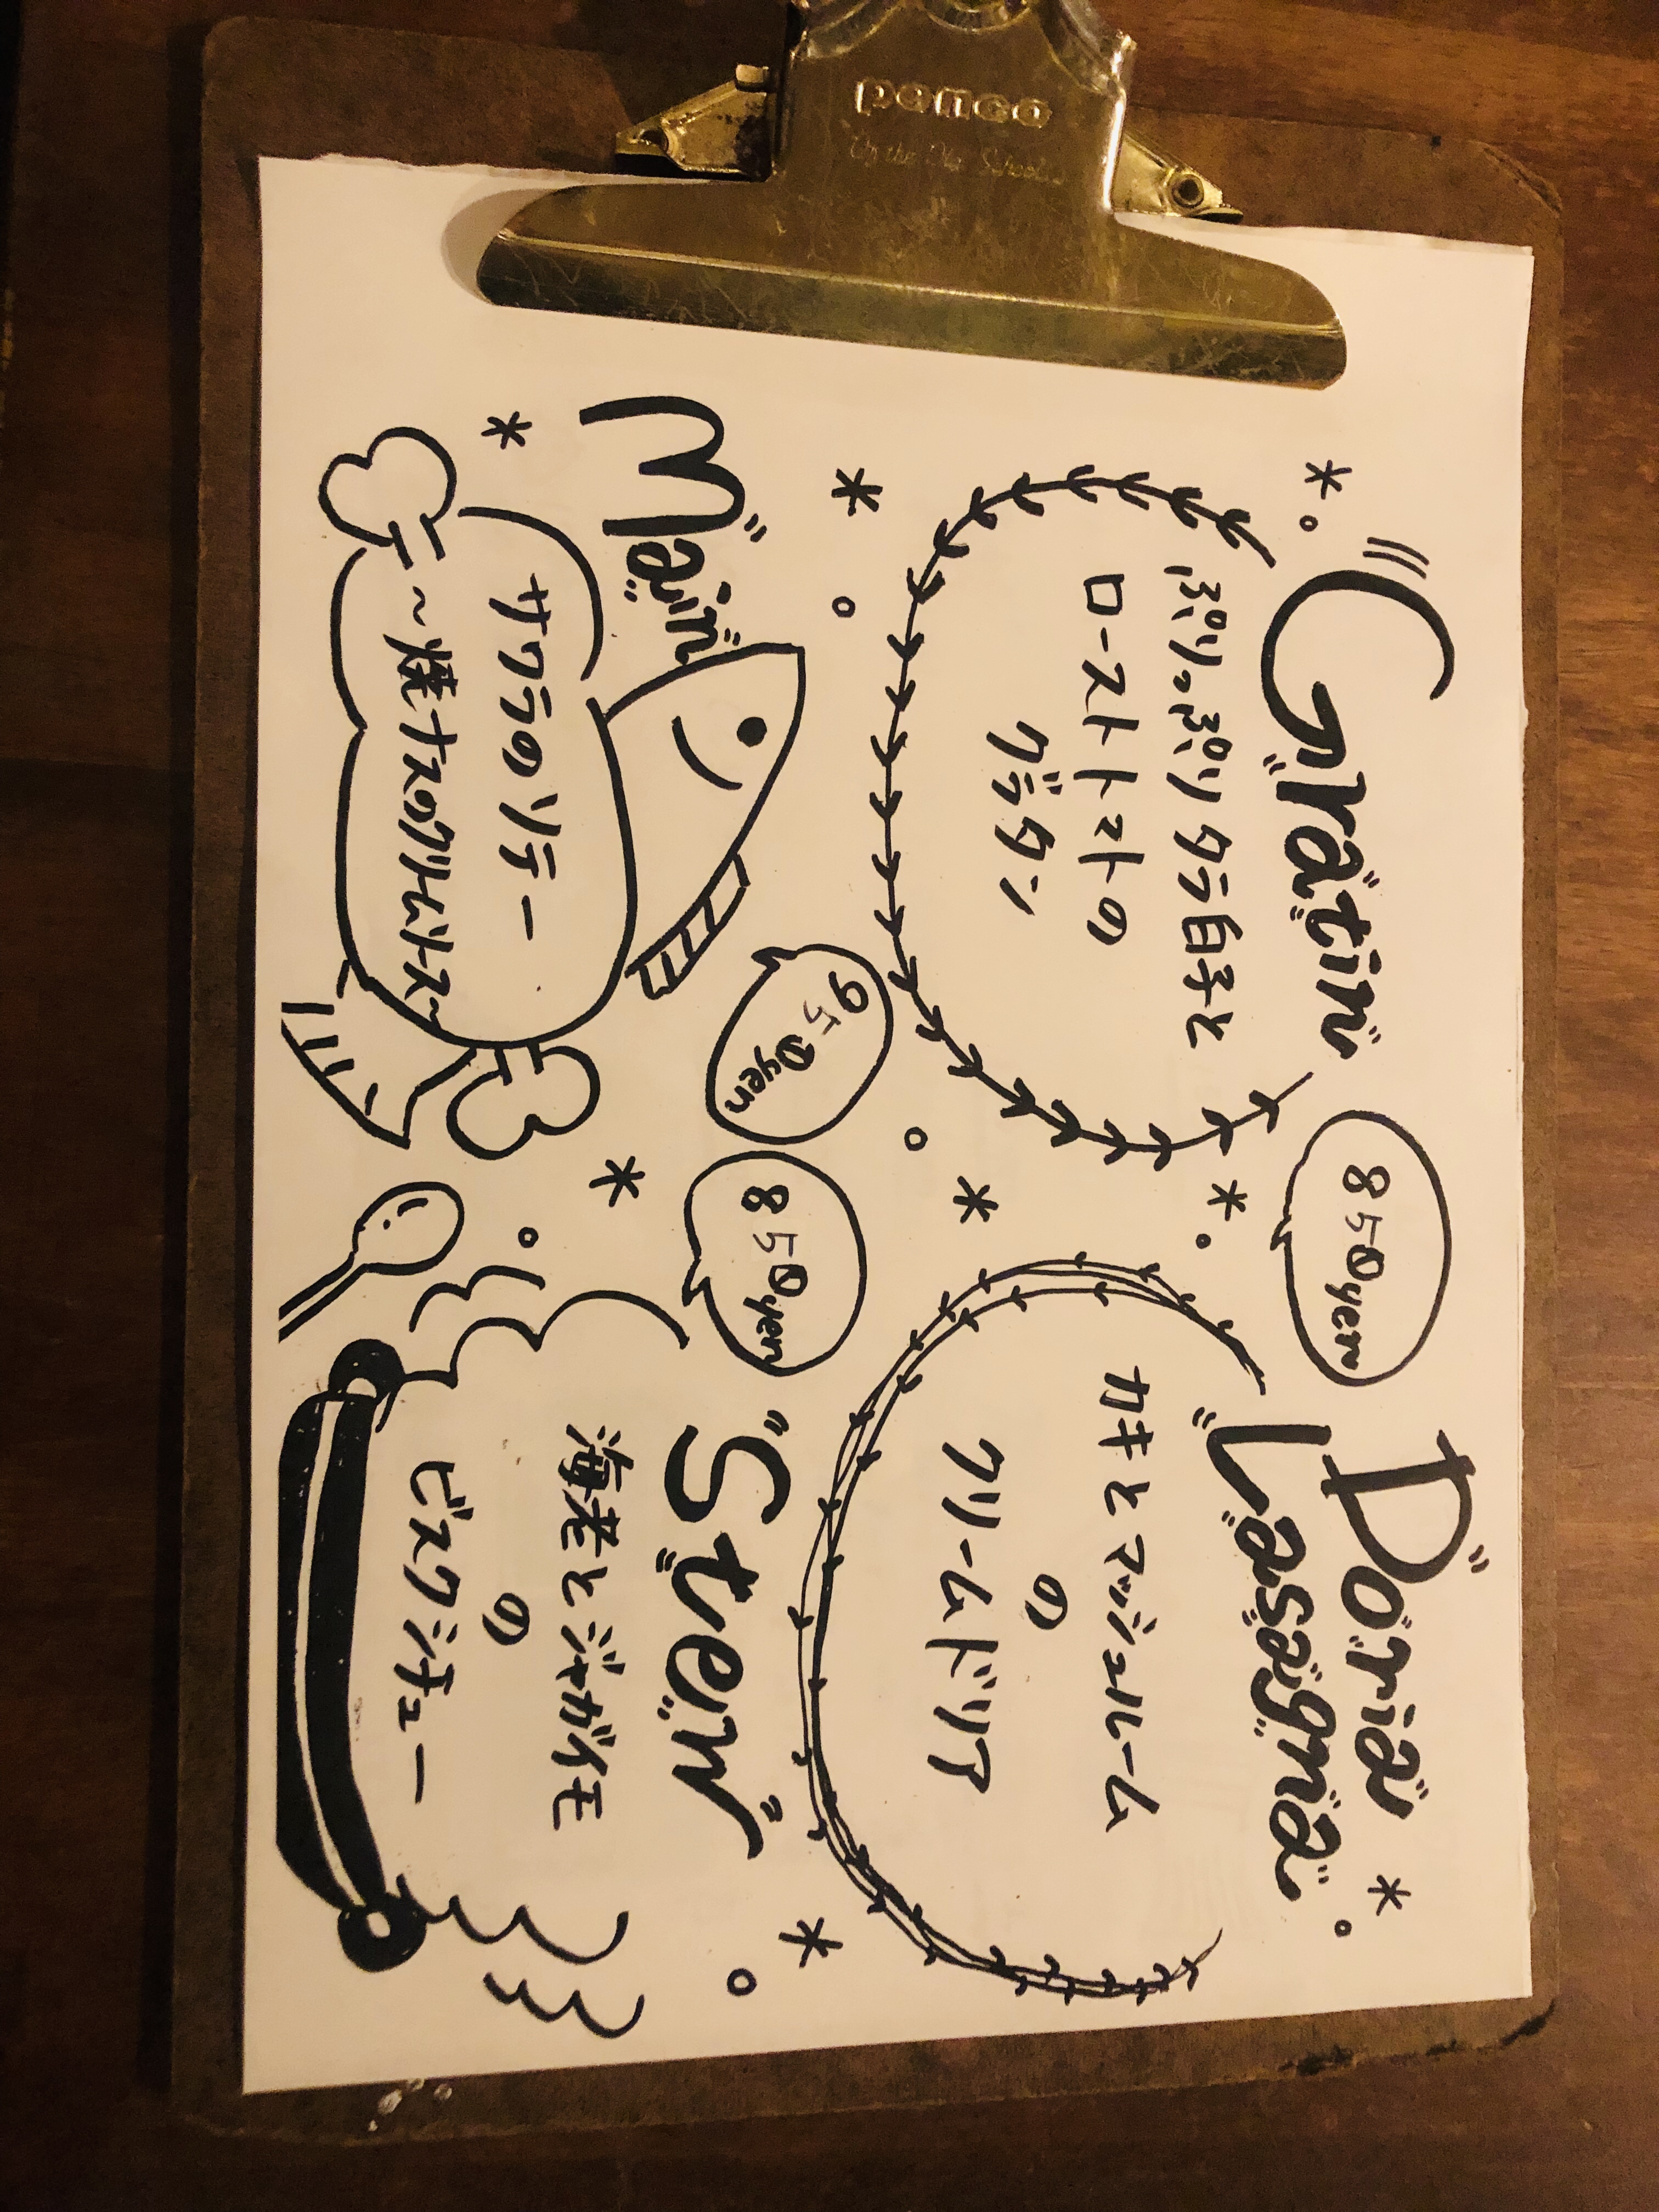 penco
Gratin
ぷりっぷりタラ白子と
ローストトマトの
グラタン
850yen
Doria
Lasagna
カキとマッシュルーム
の
クリームドリア
Main
950yen
サワラのソテー
~焼ナスのクリームソース~
850yen
Stew
海老とジャガイモ
の
ビスクシチュー